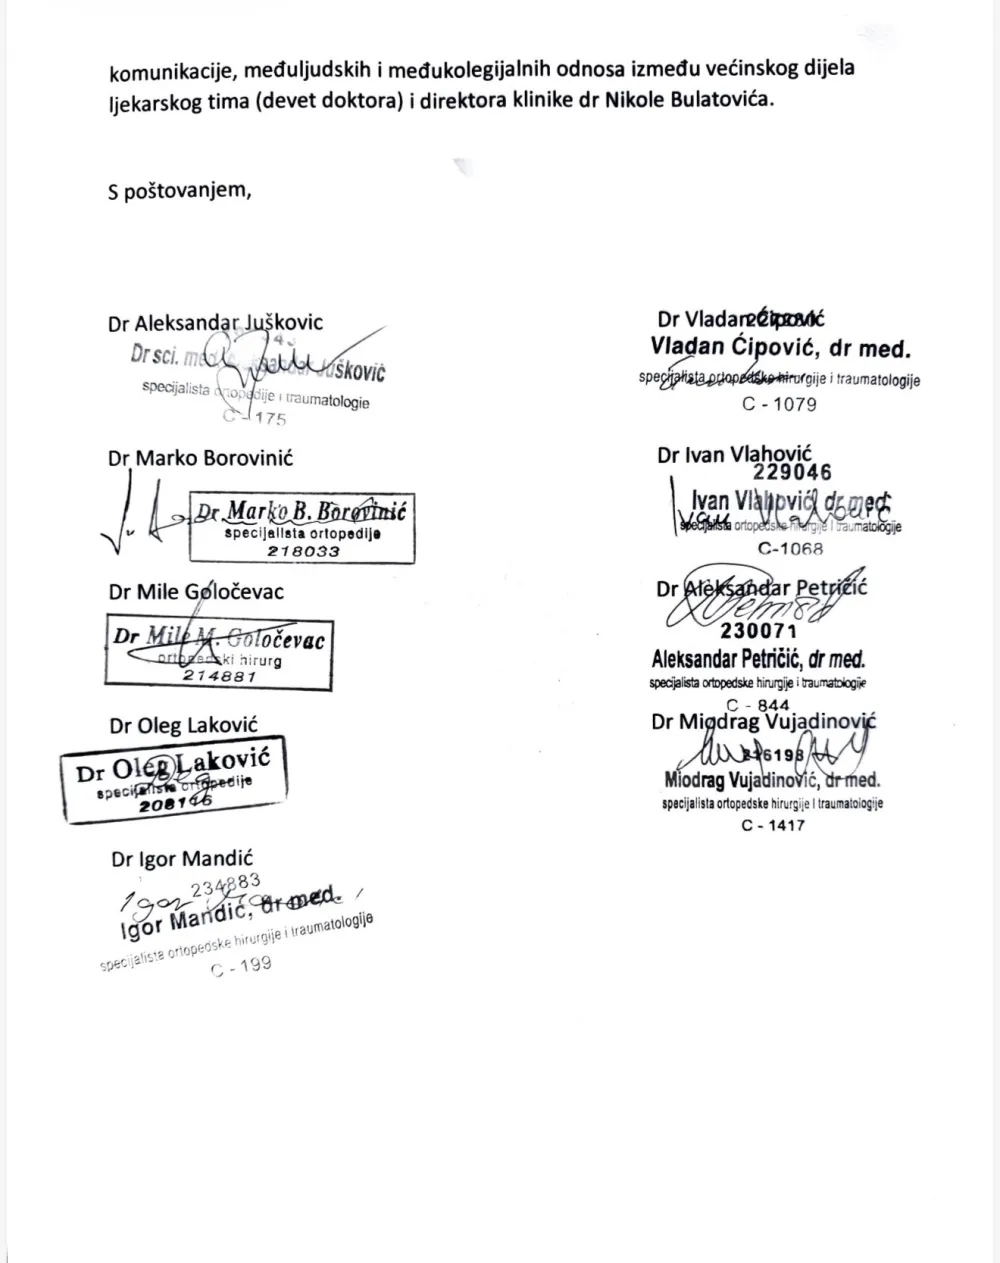 komunikacije, međuljudskih i međukolegijalnih odnosa između većinskog dijela
ljekarskog tima (devet doktora) i direktora klinike dr Nikole Bulatovića.
S poštovanjem,
Dr Aleksandar Juškovic
Dr sci. med. Jušković
specijalista ortopedije i traumatologie
C - 175
Dr Marko Borovinić
Dr Marko B. Borovinić
specijalista ortopedije
218033
Dr Mile Goločevac
Dr Mile M. Goločevac
ortopedski hirurg
214881
Dr Oleg Laković
Dr Oleg Laković
specijalista ortopedije
208146
Dr Igor Mandić
234883
Igor
Igor Mandić, dr med.
specijalista ortopedske hirurgije i traumatologije
C - 199
Dr Vladan Ćipović
Vladan Ćipović, dr med.
specijalista ortopedske hirurgije i traumatologije
C - 1079
Dr Ivan Vlahović
229046
Ivan Vlahović, dr med.
specijalista ortopedske hirurgije i traumatologije
C-1068
Dr Aleksandar Petričić
230071
Aleksandar Petričić, dr med.
specijalista ortopedske hirurgije i traumatologije
C - 844
Dr Miodrag Vujadinović
216198
Miodrag Vujadinović, dr med.
specijalista ortopedske hirurgije i traumatologije
C - 1417